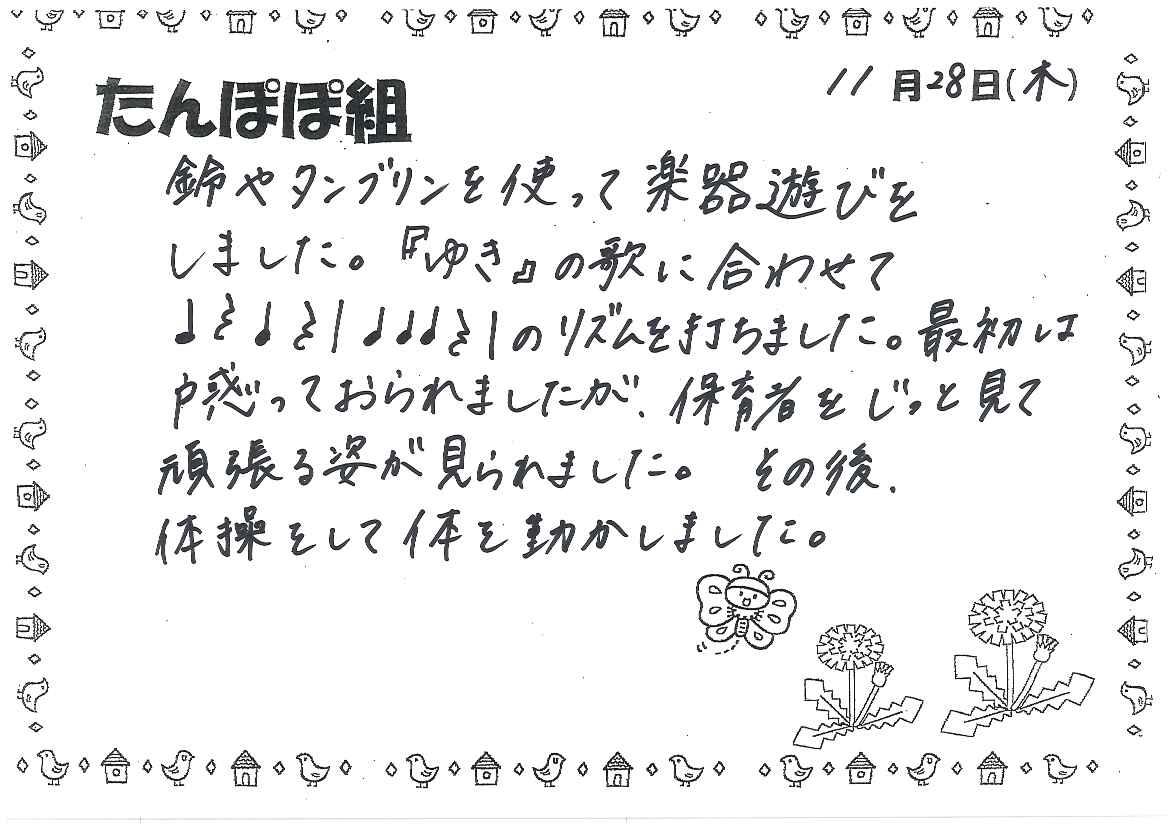 たんぽぽ組
11月28日(木)
鈴やタンブリンを使って楽器遊びを
しました。『ゆき』の歌に合わせて
♩𝄽♩𝄽|♩♩♩𝄽|のリズムを打ちました。最初は
戸惑っておられましたが、保育者をじっと見て
頑張る姿が見られました。 その後、
体操をして体を動かしました。